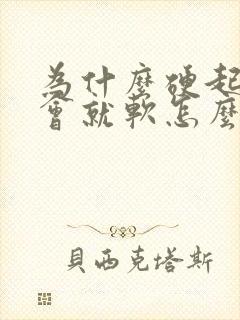 為什麼硬起
會就軟怎麼
貝西克塔斯